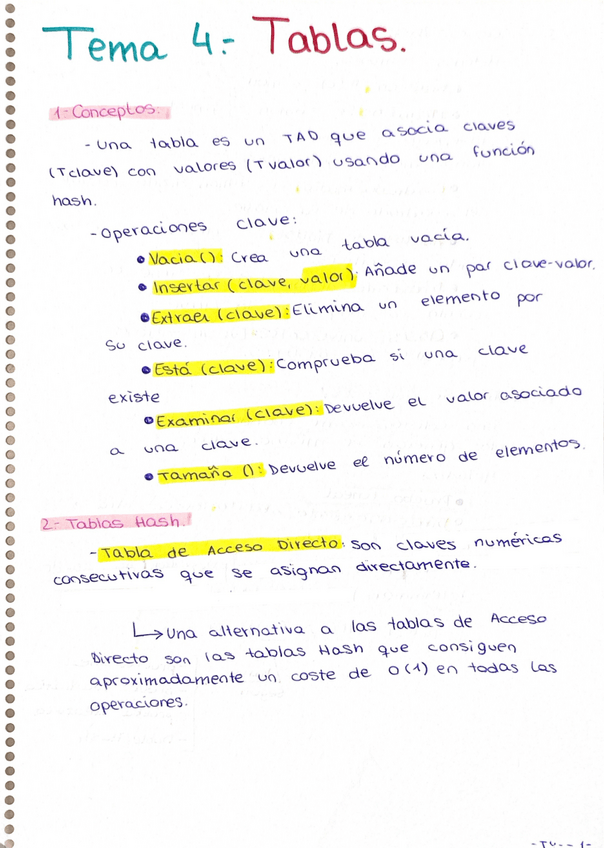 Tema 4.- Tablas.
1-Conceptos.
- Una tabla es un TAD que asocia claves
(Tclave) con valores (Tvalor) usando una función
hash.
- Operaciones clave:
• Vacia(): Crea una tabla vacía.
• Insertar (clave, valor): Añade un par clave-valor.
• Extraer (clave): Elimina un elemento por
su clave.
• Está (clave): Comprueba si una clave
existe
• Examinar (clave): Devuelve el valor asociado
a una clave.
• Tamaño (): Devuelve el número de elementos.
2- Tablas Hash.
- Tabla de Acceso Directo: Son claves numéricas
consecutivas que se asignan directamente.
↳ Una alternativa a las tablas de Acceso
Directo son las tablas Hash que consiguen
aproximadamente un coste de O(1) en todas las
operaciones.